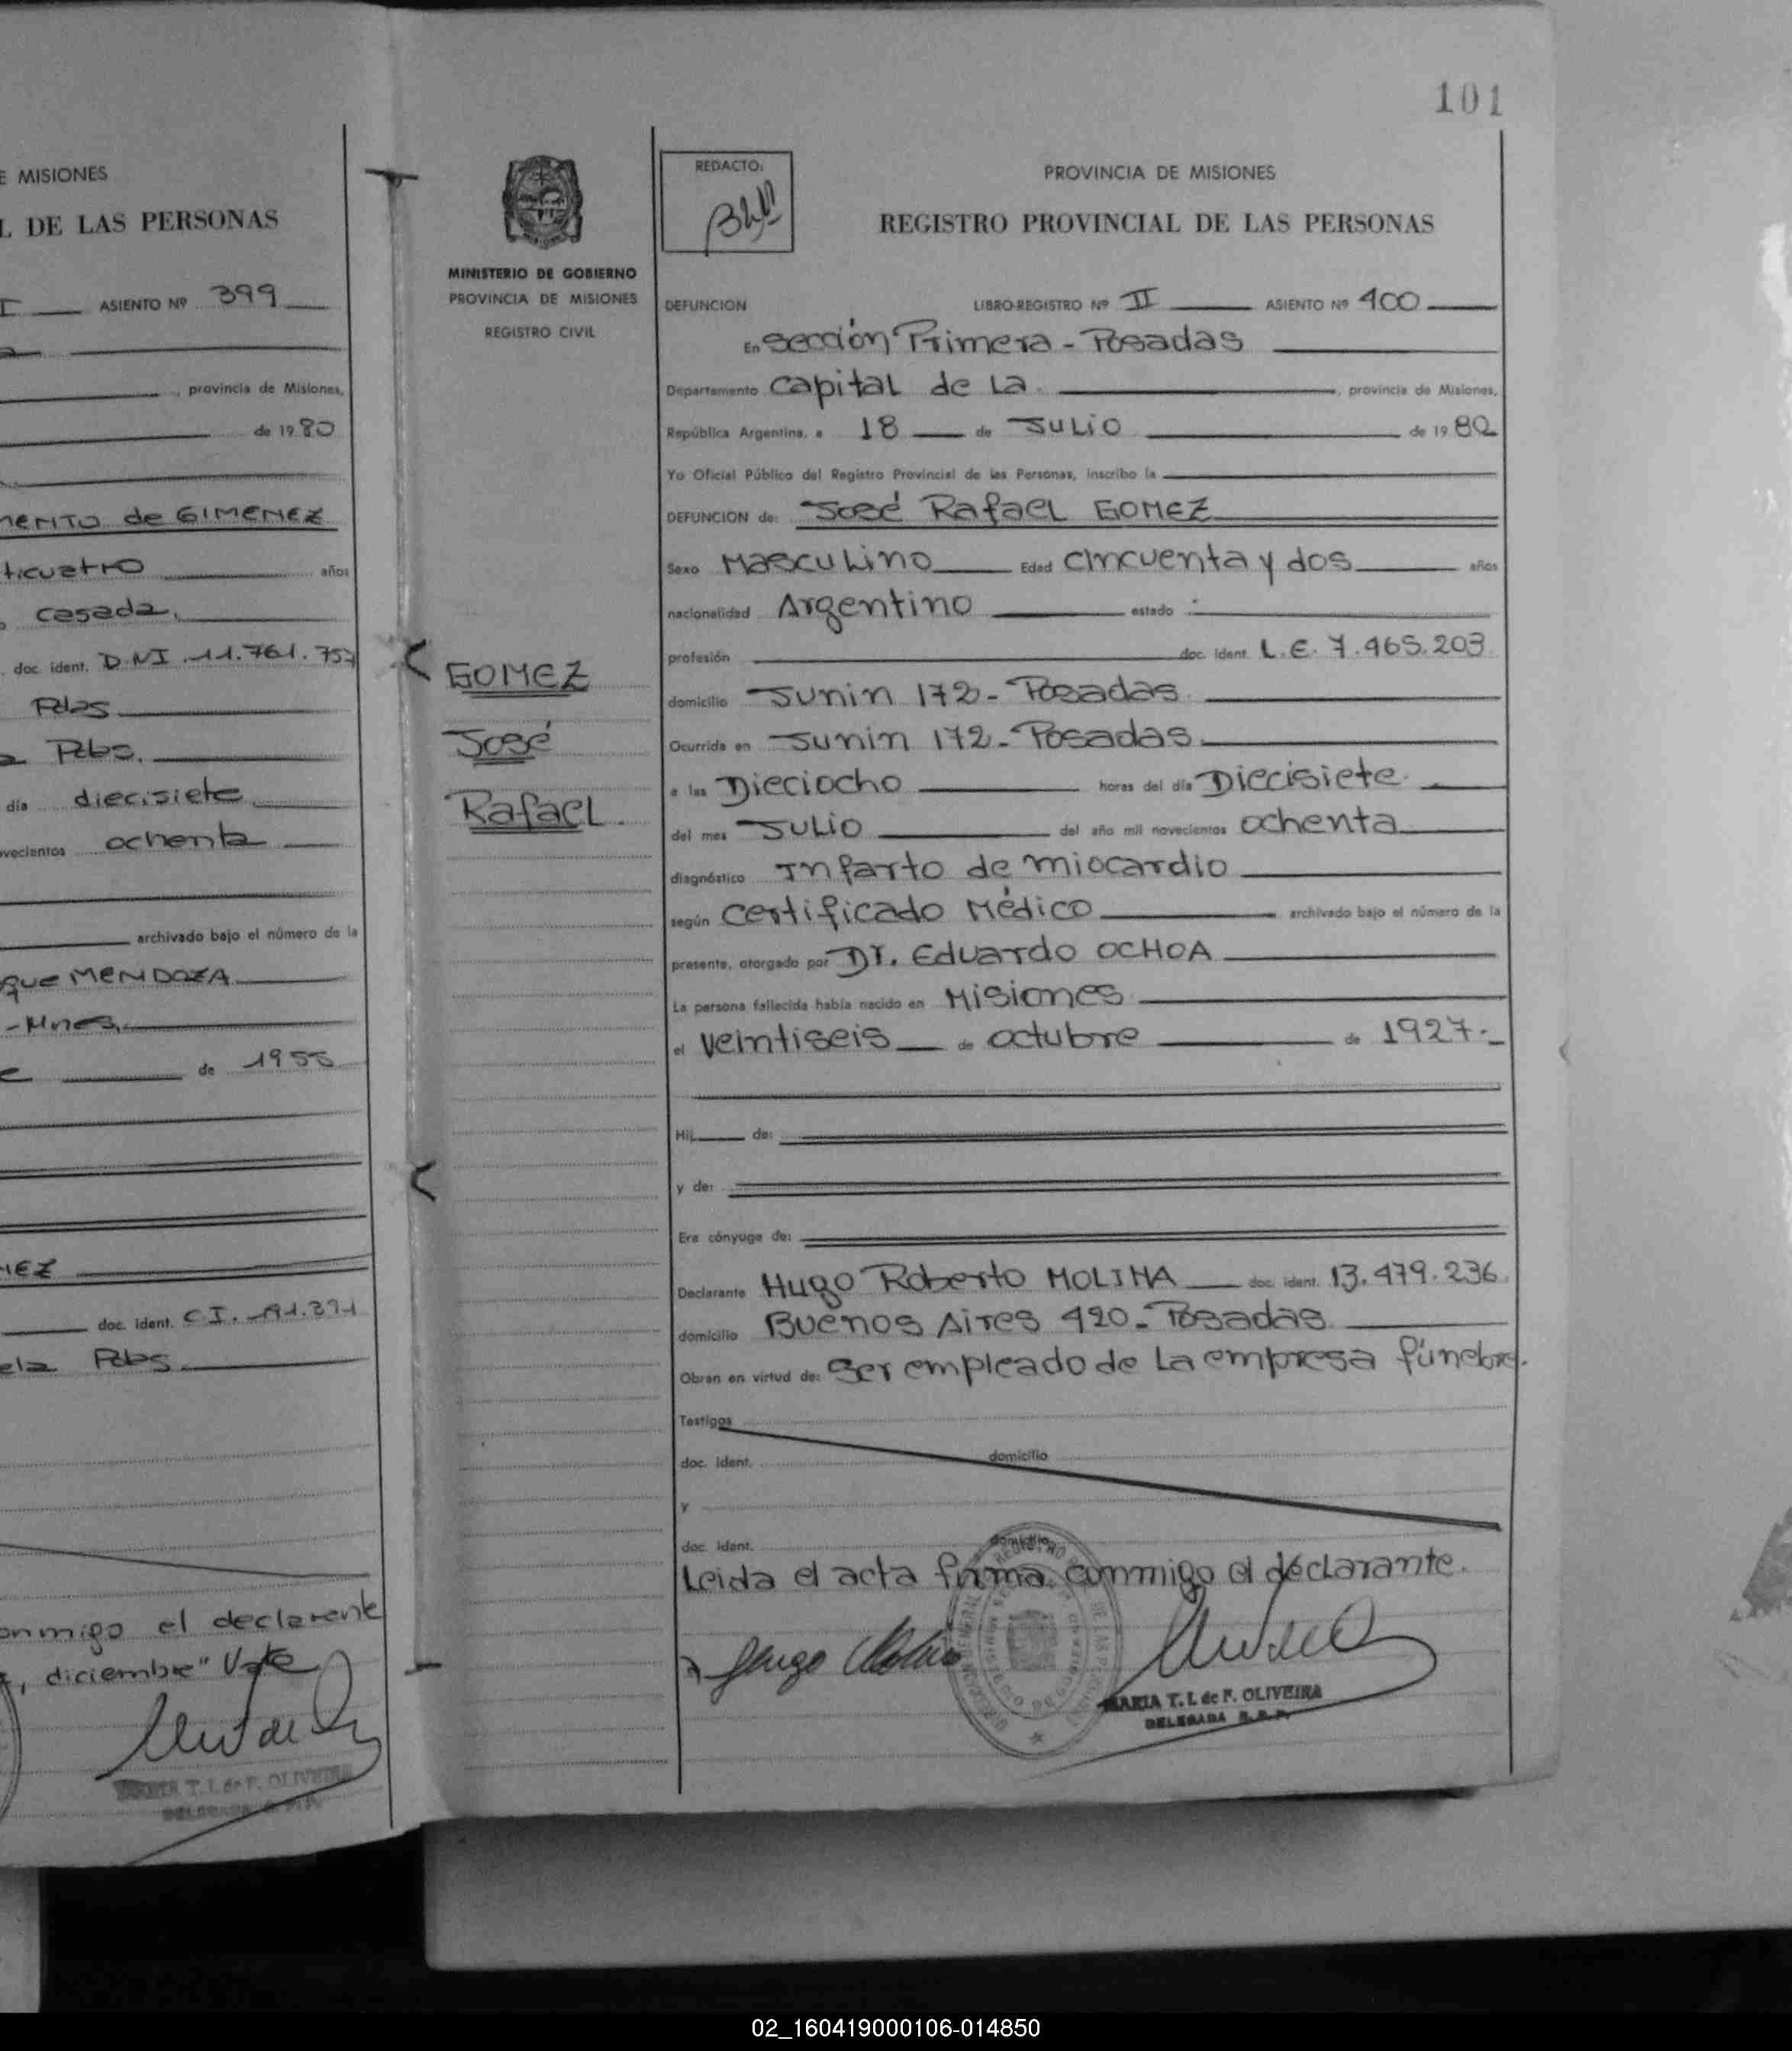 E MISIONES
L DE LAS PERSONAS
I ASIENTO Nº 399
, provincia de Misiones,
de 1980
de GIMENEZ
ticuatro años
casada.
doc. ident. D.N.I. 11.761.757
Pdas
Pdas.
día diecisiete
vecientos ochenta
archivado bajo el número de la
que MENDOZA
-Mnes.
de 1955
NEZ
doc. ident. C.I. 191.371
ela Pdas
onmigo el declarante
, diciembre" Vale
MARIA T. I. de F. OLIVEIRA
DELEGADA R.P.P.
101
MINISTERIO DE GOBIERNO
PROVINCIA DE MISIONES
REGISTRO CIVIL
GOMEZ
José
Rafael
REDACTO:
PROVINCIA DE MISIONES
REGISTRO PROVINCIAL DE LAS PERSONAS
DEFUNCION LIBRO-REGISTRO Nº II ASIENTO Nº 400
En Sección Primera - Posadas
Departamento Capital de La , provincia de Misiones,
República Argentina, a 18 de Julio de 1980
Yo Oficial Público del Registro Provincial de las Personas, inscribo la
DEFUNCION de: José Rafael GOMEZ
Sexo Masculino Edad Cincuenta y dos años
nacionalidad Argentino estado
profesión doc. ident. L.E. 7.465.203
domicilio Junin 172 - Posadas
Ocurrida en Junin 172 - Posadas
a las Dieciocho horas del día Diecisiete
del mes Julio del año mil novecientos ochenta
diagnóstico Infarto de miocardio
según Certificado Médico archivado bajo el número de la
presente, otorgado por Dr. Eduardo OCHOA
La persona fallecida había nacido en Misiones
el veintiseis de octubre de 1927.-
Hij de:
y de:
Era cónyuge de:
Declarante Hugo Roberto MOLINA doc. ident. 13.479.236
domicilio Buenos Aires 420 - Posadas
Obran en virtud de: Ser empleado de La empresa fúnebre.
Testigos
doc. ident. domicilio
y
doc. ident. domicilio
Leida el acta firma conmigo el declarante.
MARIA T. I. de F. OLIVEIRA
DELEGADA R.P.P.
02_160419000106-014850